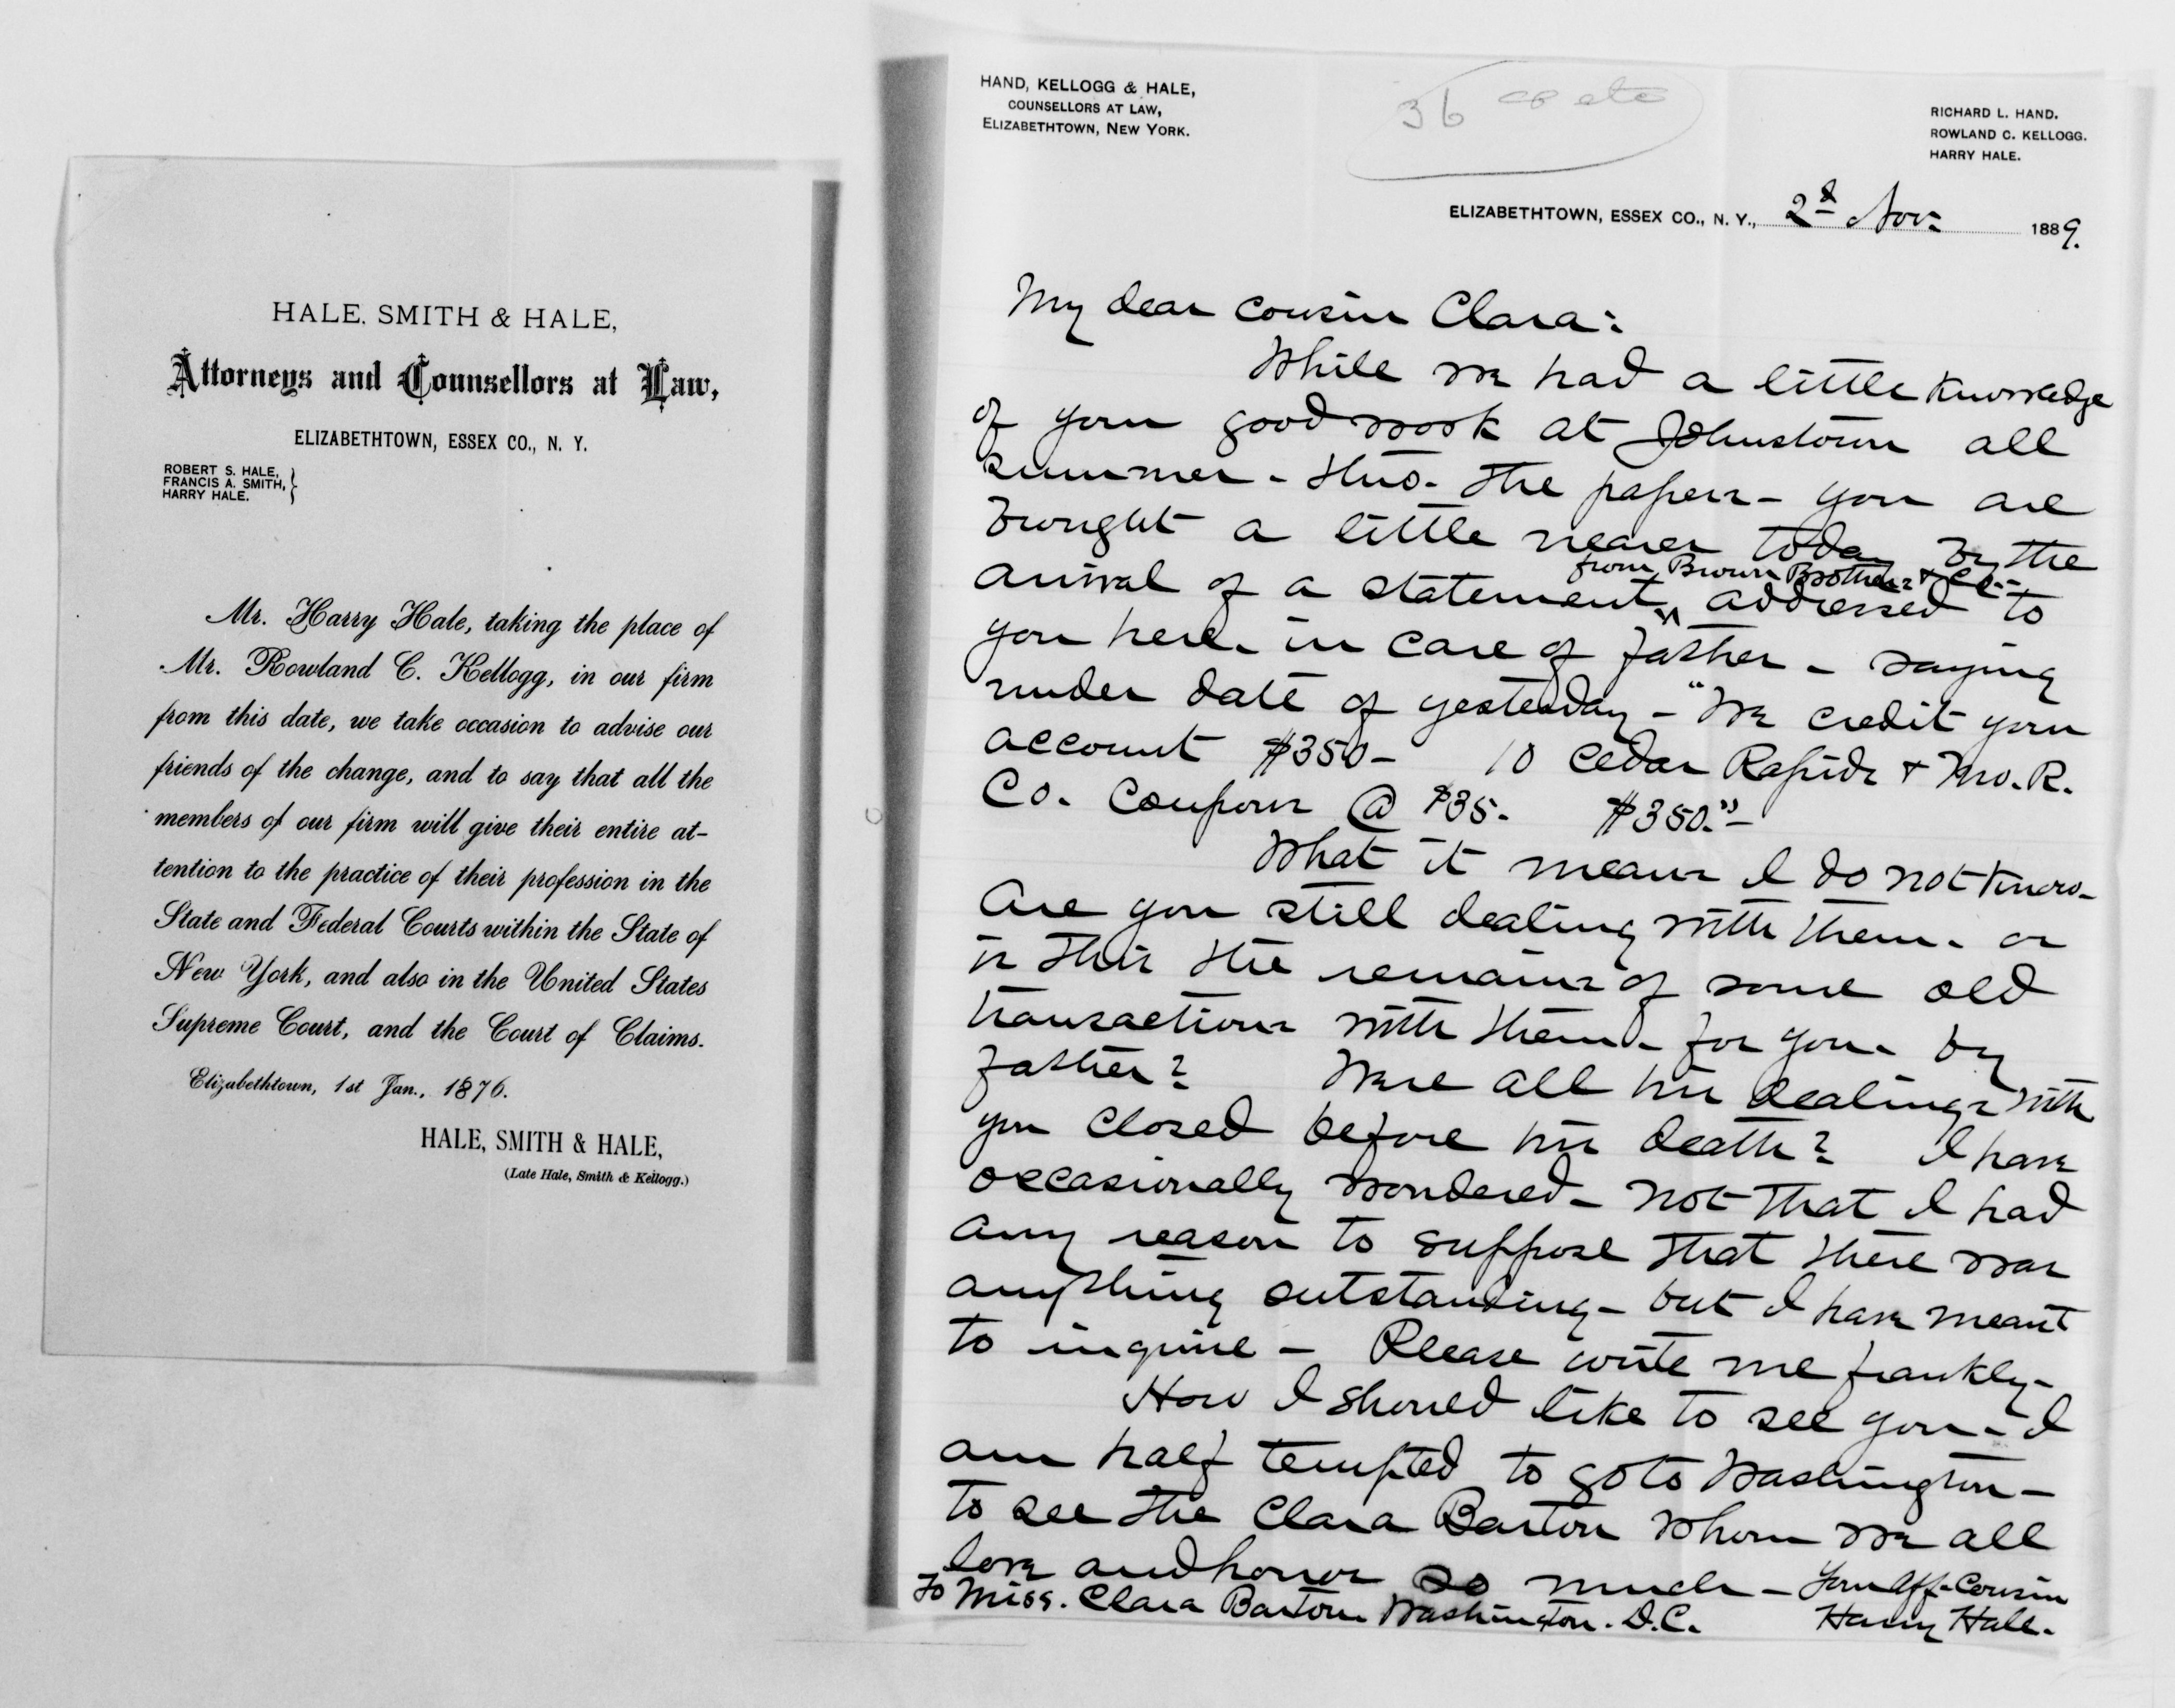 HALE, SMITH & HALE,
Attorneys and Counsellors at Law,
ELIZABETHTOWN, ESSEX CO., N. Y.
ROBERT S. HALE,
FRANCIS A. SMITH,
HARRY HALE.
Mr. Harry Hale, taking the place of
Mr. Rowland C. Kellogg, in our firm
from this date, we take occasion to advise our
friends of the change, and to say that all the
members of our firm will give their entire at-
tention to the practice of their profession in the
State and Federal Courts within the State of
New York, and also in the United States
Supreme Court, and the Court of Claims.
Elizabethtown, 1st Jan., 1876.
HALE, SMITH & HALE,
(Late Hale, Smith & Kellogg.)
HAND, KELLOGG & HALE,
COUNSELLORS AT LAW,
ELIZABETHTOWN, NEW YORK.
36
RICHARD L. HAND.
ROWLAND C. KELLOGG.
HARRY HALE.
ELIZABETHTOWN, ESSEX CO., N. Y., 2d Nov. 1889.
My dear Cousin Clara:
While we had a little knowledge
of your good work at Johnstown all
summer - thro. the papers - you are
brought a little nearer today by the
arrival of a statement from Brown Brothers & Co. addressed to
you here in care of father - saying
under date of yesterday - "We credit your
account $350 - 10 Cedar Rapids & Mo. R.
Co. Coupons @ $35. $350."-
What it means I do not know -
Are you still dealing with them - or
is this the remains of some old
transactions with them - for you - by
father? Were all his dealings with
you closed before his death? I have
occasionally wondered - not that I had
any reason to suppose that there was
anything outstanding - but I have meant
to inquire - Please write me frankly -
How I should like to see you - I
am half tempted to go to Washington -
to see the Clara Barton whom we all
love and honor so much - Your Aff. Cousin
To Miss. Clara Barton Washington. D.C. Harry Hale.